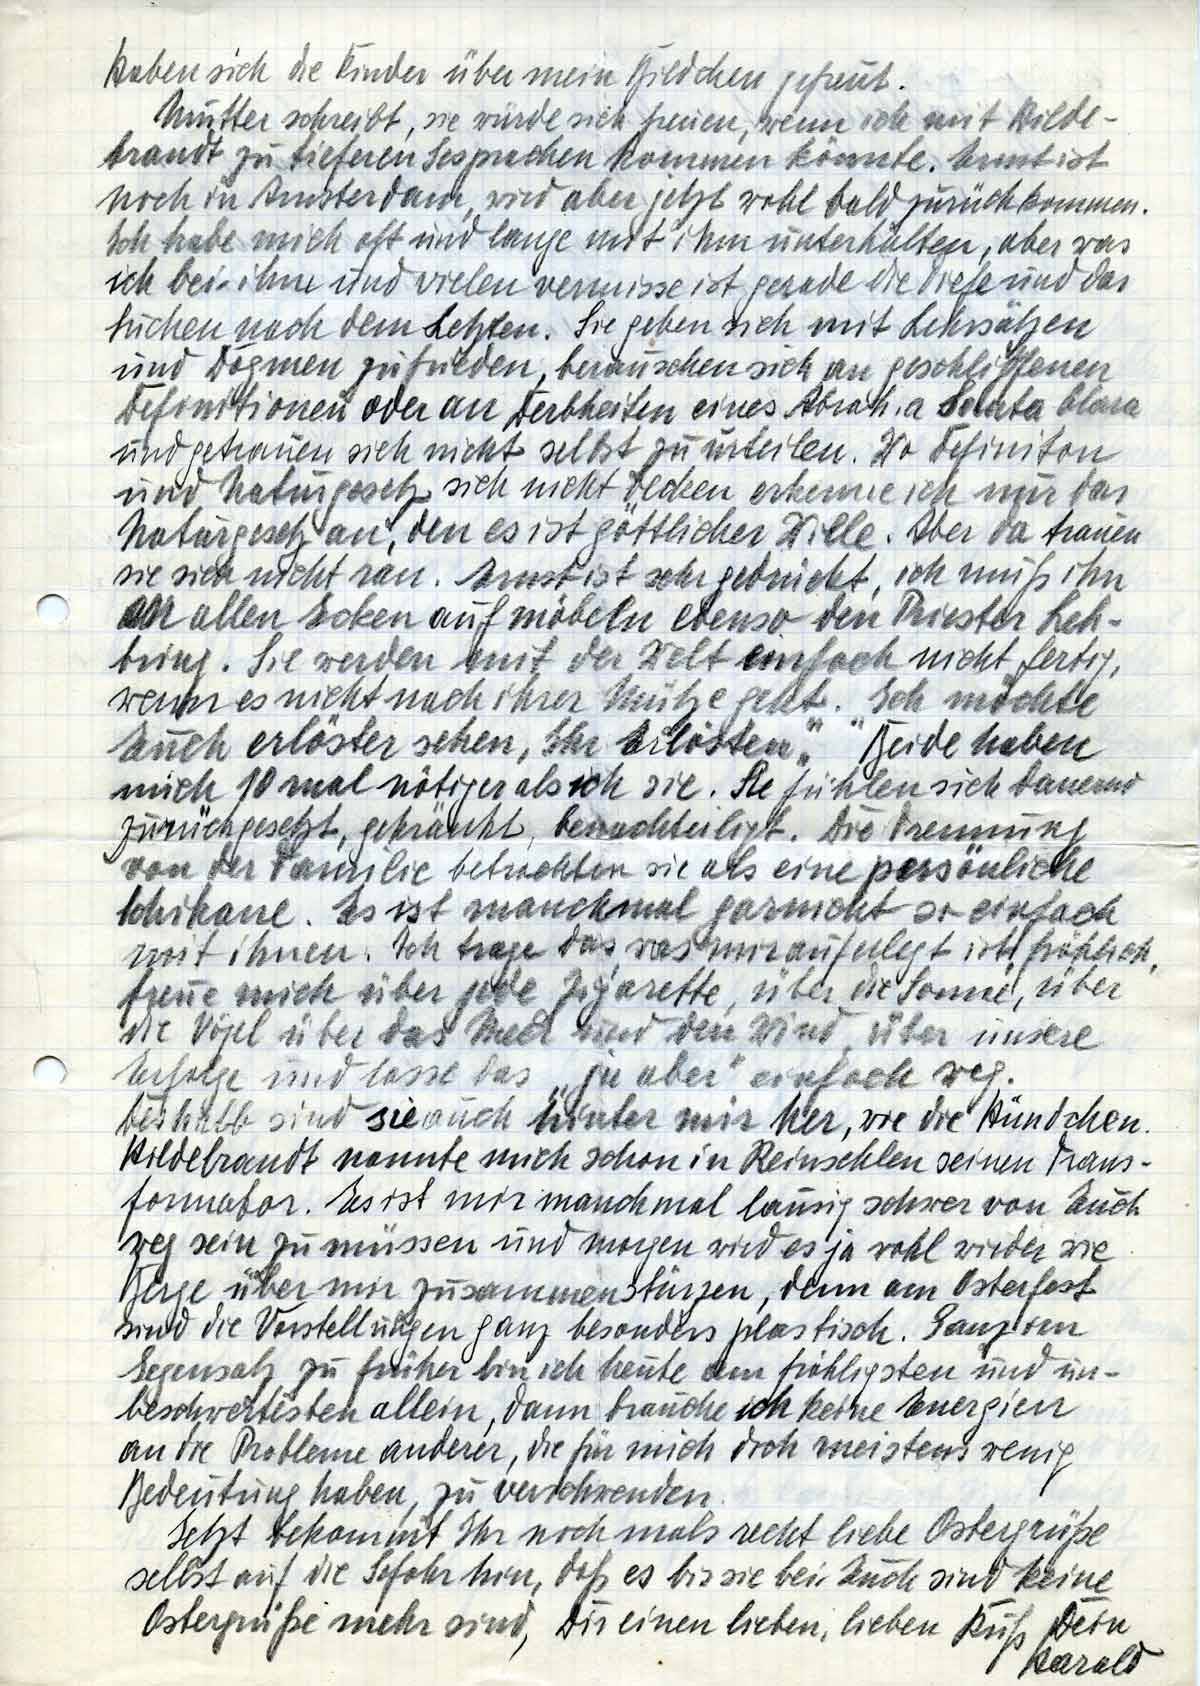 Haben sich die Kinder über mein Bildchen gefreut.
Mutter schreibt, sie würde sich freuen, wenn ich mit Hilde-
brandt zu tieferen Gesprächen kommen könnte. Ernst ist
noch in Amsterdam, wird aber jetzt wohl bald zurückkommen.
Ich habe mich oft und lange mit ihm unterhalten, aber was
ich bei ihm und vielen vermisse ist gerade die Tiefe und das
Suchen nach dem Letzten. Sie geben sich mit Lehrsätzen
und Dogmen zufrieden, berauschen sich an geschliffenen
Definitionen oder an Derbheiten eines Abrah. a Santa Clara
und getrauen sich nicht selbst zu urteilen. Wo Definiton
und Naturgesetz sich nicht decken erkenne ich nur das
Naturgesetz an, den es ist göttlicher Wille. Aber da trauen
sie sich nicht ran. Ernst ist sehr gedrückt, ich muß ihn
an allen Ecken auf möbeln ebenso den Priester Leh-
bring. Sie werden mit der Welt einfach nicht fertig,
wenn es nicht nach ihrer Mütze geht. Ich möchte
Euch erlöster sehen, Ihr Erlösten." "Beide haben
mich 10 mal nötiger als ich sie. Sie fühlen sich dauernd
zurückgesetzt, gekränkt, benachteiligt. Die Trennung
von der Familie betrachten sie als eine persönliche
Schikane. Es ist manchmal garnicht so einfach
mit ihnen. Ich trage das, was mir auferlegt ist, fröhlich,
freue mich über jede Zigarette, über die Sonne, über
die Vögel über das Meer und den Wind, über unsere
Erfolge und lasse das „ja aber" einfach weg.
Deshalb sind sie auch hinter mir her, wie die Hündchen.
Hildebrandt nannte mich schon in Reinsehlen seinen Trans-
formator. Es ist mir manchmal lausig schwer von Euch
weg sein zu müssen und morgen wird es ja wohl wieder wie
Berge über mir zusammenstürzen, denn am Osterfest
sind die Vorstellungen ganz besonders plastisch. Ganz im
Gegensatz zu früher bin ich heute am fröhligsten und un-
beschwertesten allein, dann brauche ich keine Energien
an die Probleme anderer, die für mich doch meistens wenig
Bedeutung haben, zu verschwenden.
Jetzt bekommt Ihr noch mals recht liebe Ostergrüße
selbst auf die Gefahr hin, daß es bis sie bei Euch sind keine
Ostergrüße mehr sind, Dir einen lieben, lieben Kuß Dein
Harald